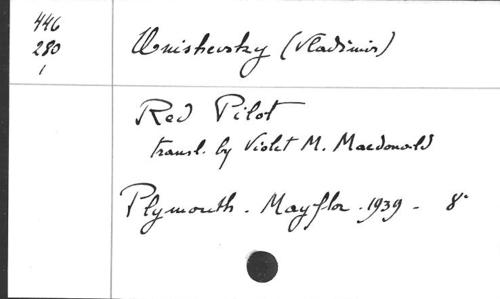 446
280
1
Unishevsky (Vladimir)
Red Pilot
transl. by Violet M. Macdonald
Plymouth. Mayflor. 1939 - 8°